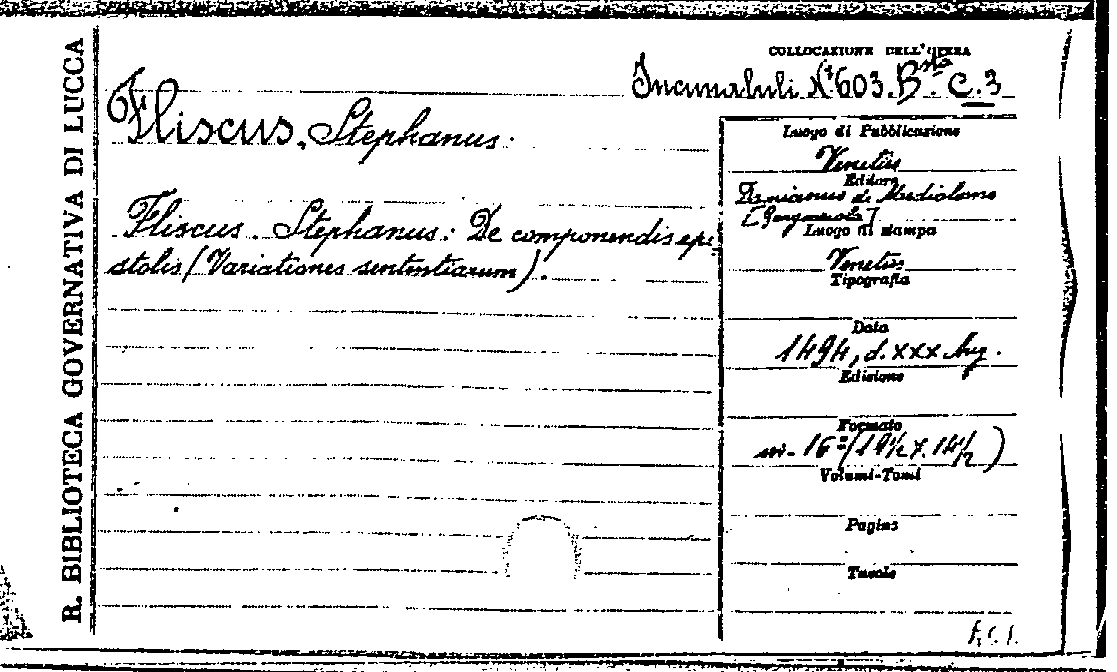 R. BIBLIOTECA GOVERNATIVA DI LUCCA
COLLOCAZIONE DELL'OPERA
Incunabuli N° 603. Bsta C. 3
Fliscus, Stephanus.
Fliscus. Stephanus: De componendis epi-
stolis (Variationes sententiarum).
Luogo di Pubblicazione
Venetiis
Editore
Damianus de Mediolano
[Gorgonzola]
Luogo di stampa
Venetiis
Tipografia
Data
1494, d. xxx Aug.
Edizione
Formato
in-16° (19½ X. 14½)
Volumi-Tomi
Pagine
Tavole